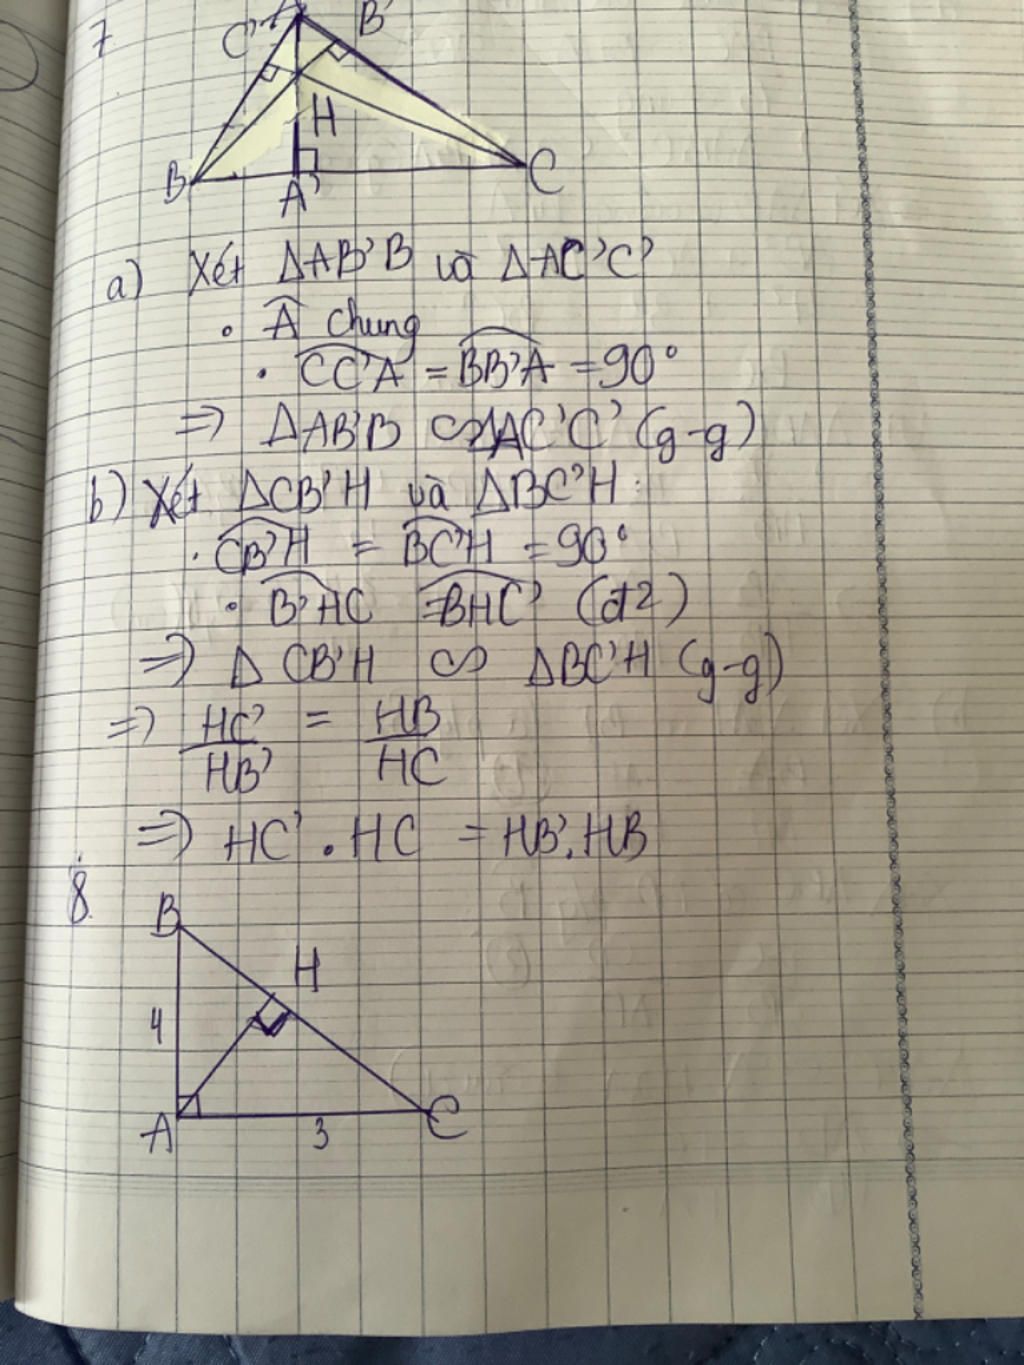 7.
A
B'
C'
H
B
A'
C
a) Xét ΔAB'B và ΔAC'C
• Â chung
• CC'A = BB'A = 90°
⇒ ΔAB'B ∽ ΔAC'C (g-g)
b) Xét ΔCB'H và ΔBC'H:
• CB'H = BC'H = 90°
• B'HC = BHC' (đ²)
⇒ Δ CB'H ∽ ΔBC'H (g-g)
⇒ HC'/HB' = HB/HC
⇒ HC' . HC = HB'. HB
8.
B
H
4
A
3
C